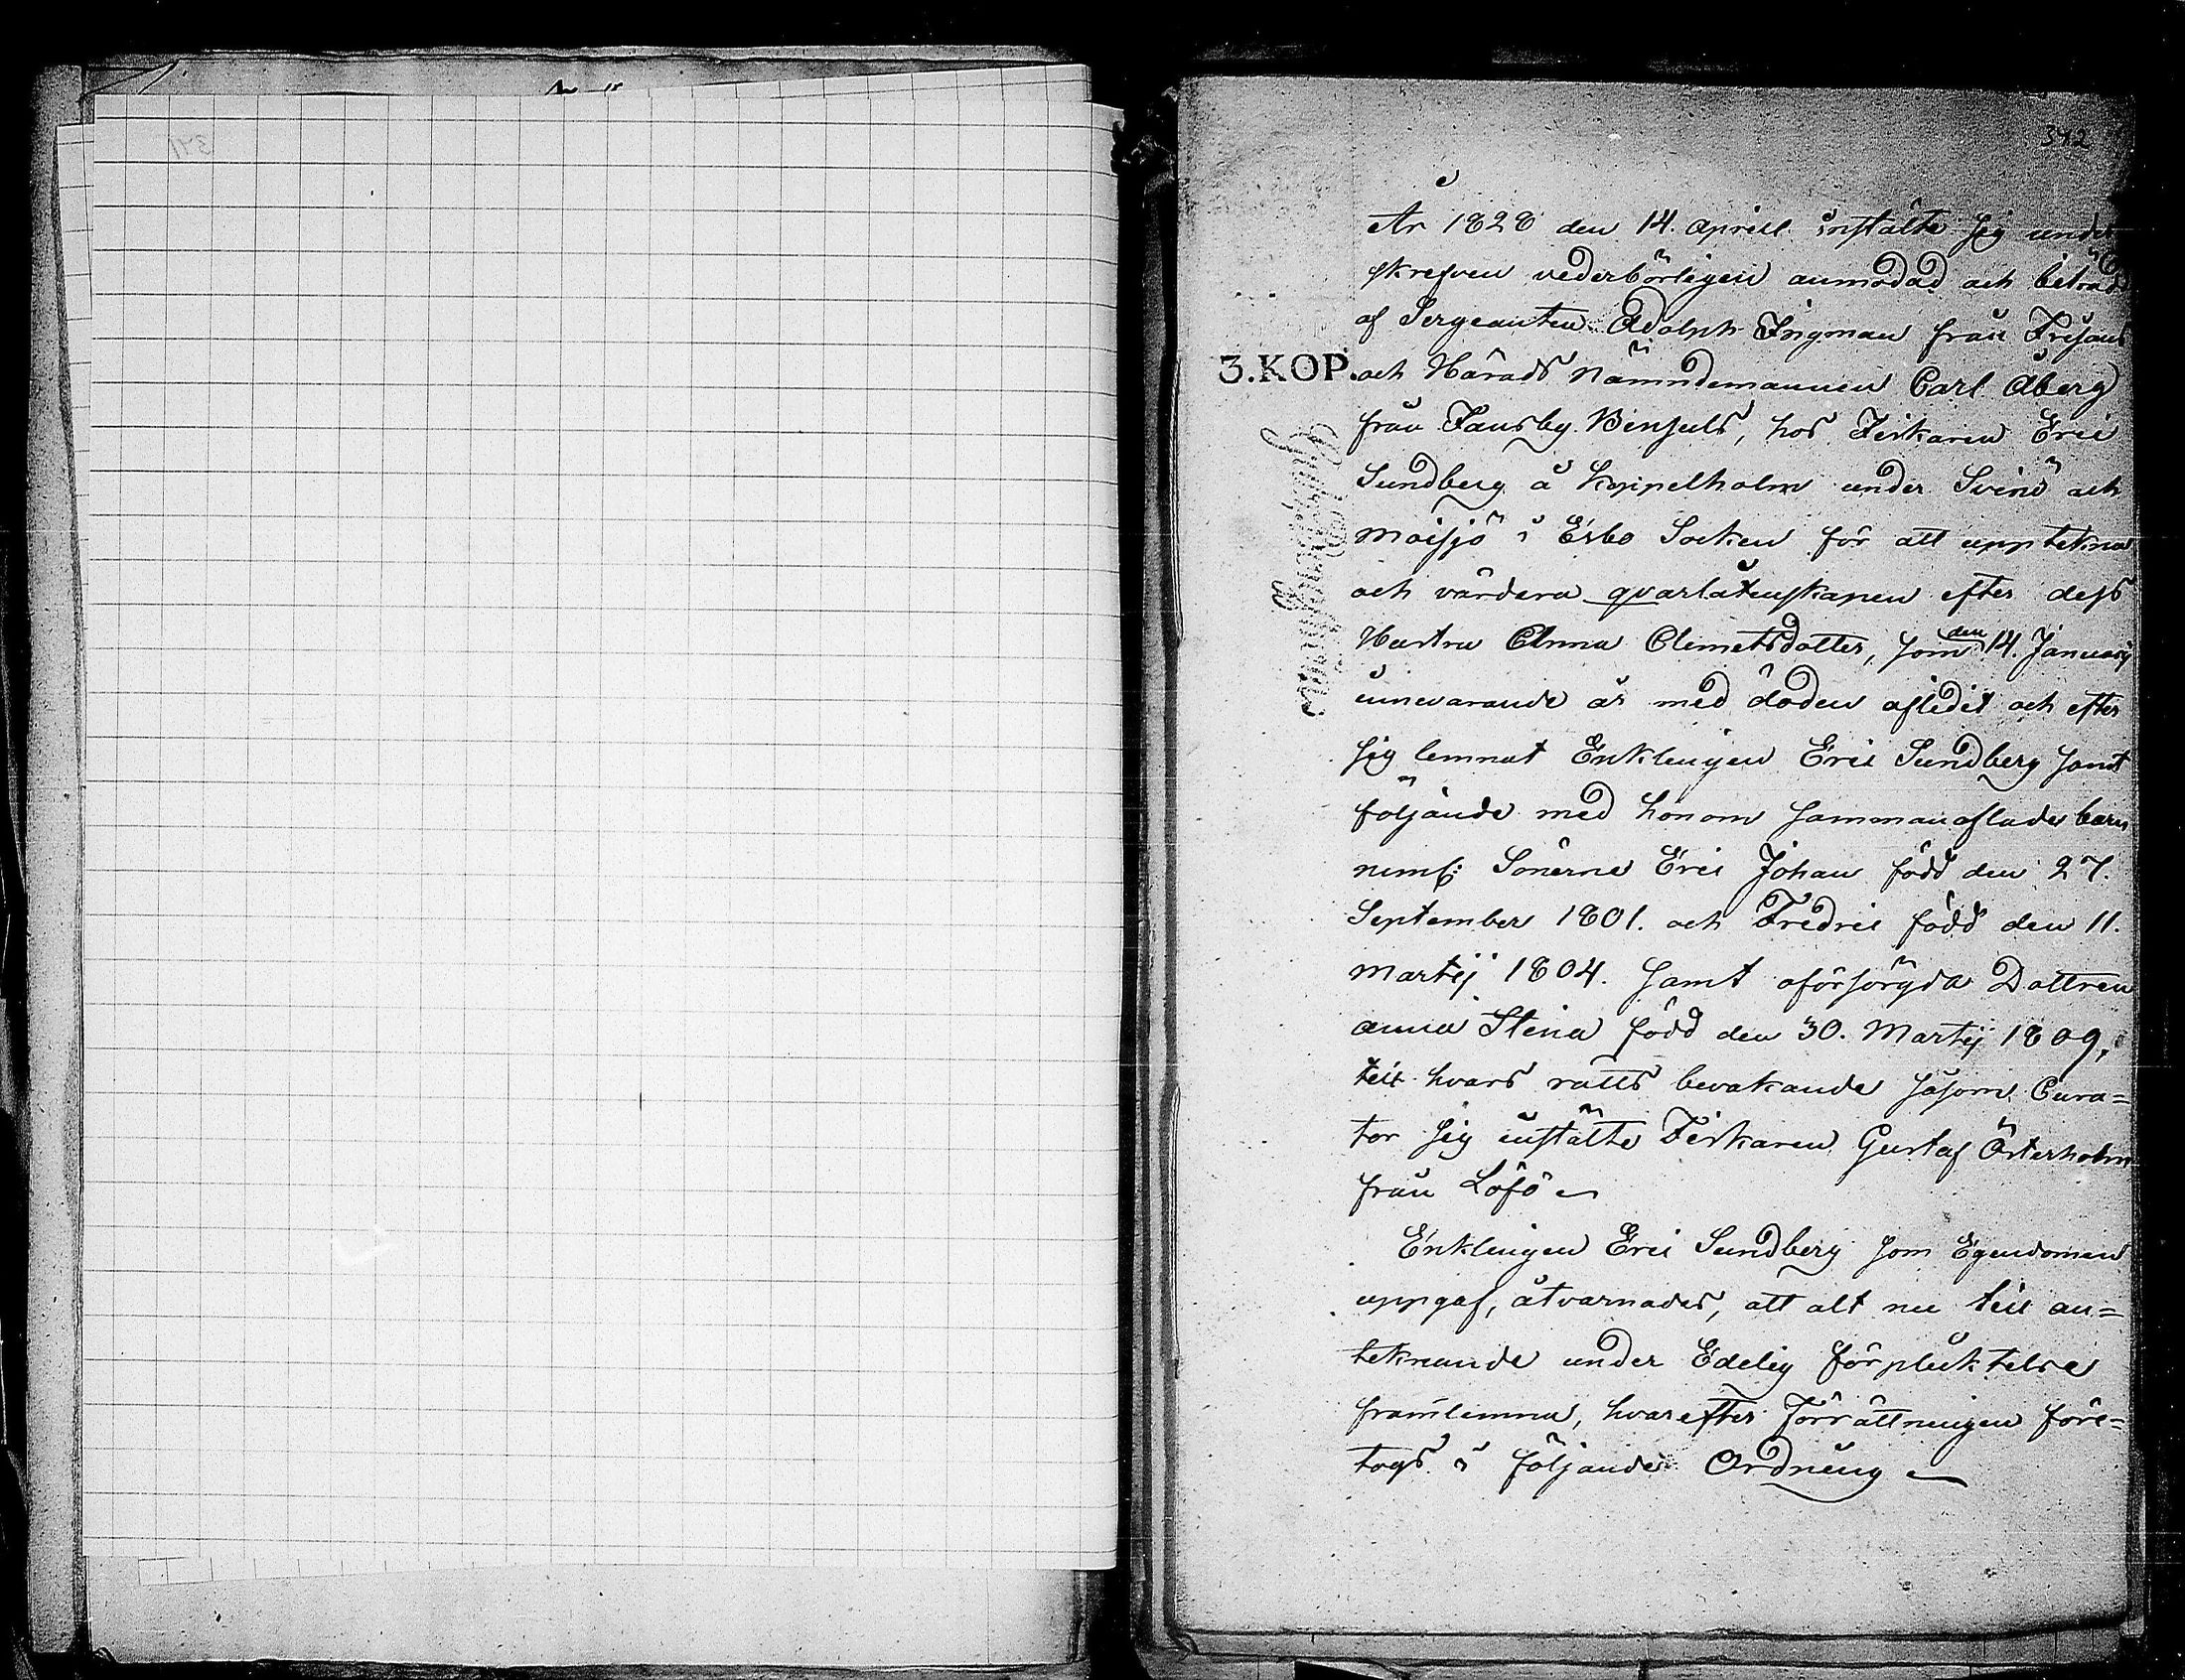 341
342
År 1828 den 14. April instälte sig under
skrefven vederbörligen anmodad och biträdd
af Sergeanten Adolph Ingman från Frisans
3.KOP.
och Härads Nämndemannen Carl Åberg
från Fansby Binjuls, hos Fiskaren Eric
Sundberg å Koppelholm under Svinö och
Moisjö i Esbo Socken för att uppteckna
och värdera qvarlåtenskapen efter dess
Hustru Anna Clemetsdotter, som den 14. Januarij
innevarande år med döden aflidit och efter
sig lemnat Enklingen Eric Sundberg samt
följande med honom sammanaflade barn
neml: Sönerne Eric Johan född den 27.
September 1801. och Fredric född den 11.
Martij 1804. samt oförsörgda Dottren
Anna Stina född den 30. Martij 1809,
till hvars rätts bevakande såsom Cura=
tor sig instälte Fiskaren Gustaf Österholm
från Löfö
Enklingen Eric Sundberg som Egendomen
uppgaf, åtvarnades, att alt nu till an=
teknande under Edelig förpliktelse
framlemna, hvarefter Förrättningen före=
togs i följande Ordning